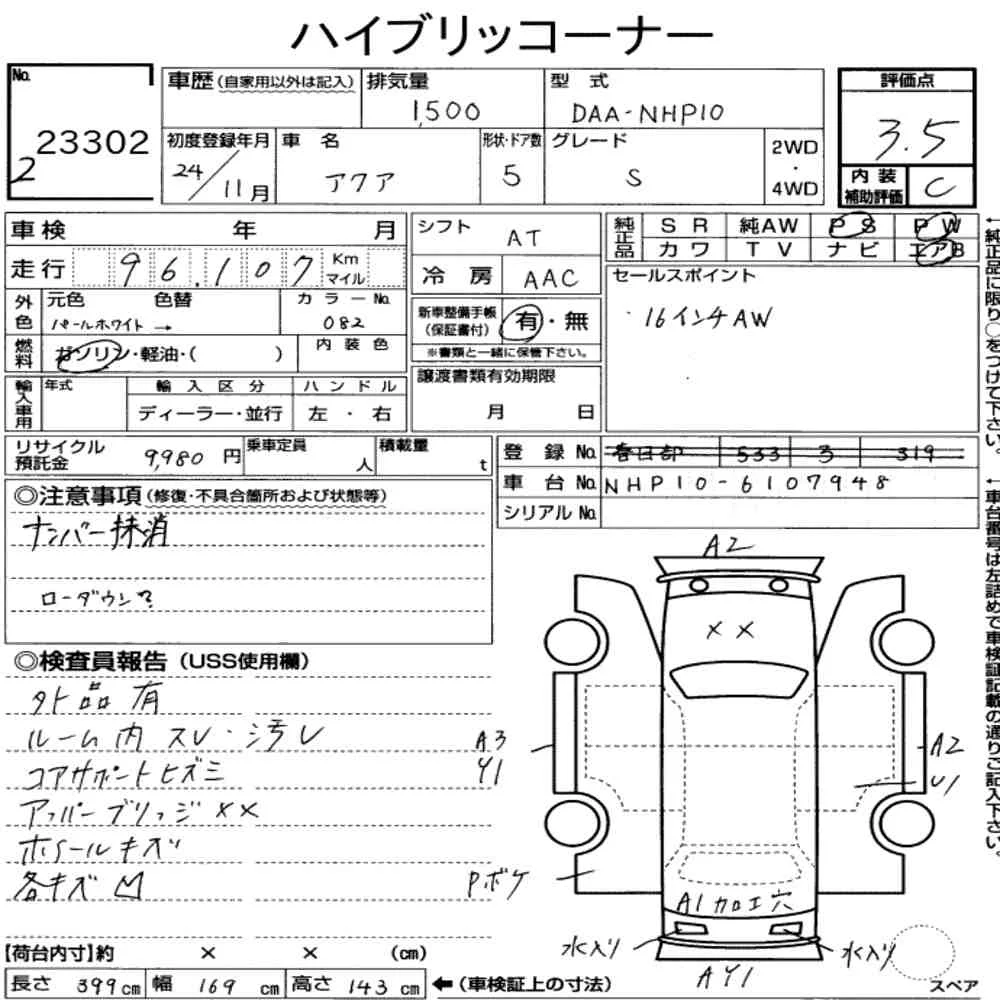 ハイブリッコーナー
No. 2 23302
車歴(自家用以外は記入)
排気量 1,500
型式 DAA-NHP10
評価点 3.5
初度登録年月 24/11月
車名 アクア
形状・ドア数 5
グレード S
2WD・4WD
内装補助評価 C
車検 年 月
走行 96,107 Km マイル
外色 元色 パールホワイト → 色替
カラーNo. 082
燃料 ガソリン・軽油・( )
内装色
輸入車用 年式
輸入区分 ディーラー・並行
ハンドル 左・右
シフト AT
冷房 AAC
新車整備手帳(保証書付) 有・無
※書類と一緒に保管下さい。
譲渡書類有効期限
月 日
純正品 SR 純AW PS PW
カワ TV ナビ エアB
セールスポイント
・16インチAW
←純正品に限り○をつけて下さい。
リサイクル預託金 9,980円
乗車定員 人
積載量 t
登録No. 春日部 533 3 319
車台No. NHP10-6107948
シリアルNo.
←車台番号は左詰めで車検証記載の通りご記入下さい。
◎注意事項(修復・不具合箇所および状態等)
ナンバー抹消
ローダウン?
◎検査員報告(USS使用欄)
外品有
ルーム内スレ・汚レ
コアサポートヒズミ
アッパーブリッジ××
ホイールキズ
各キズ凹
A2
××
A3
Y1
A2
U1
Pボケ
A1加工穴
水入り
水入り
AY1
スペア
【荷台内寸】約 × × (cm)
長さ 399cm 幅 169cm 高さ 143cm ←(車検証上の寸法)